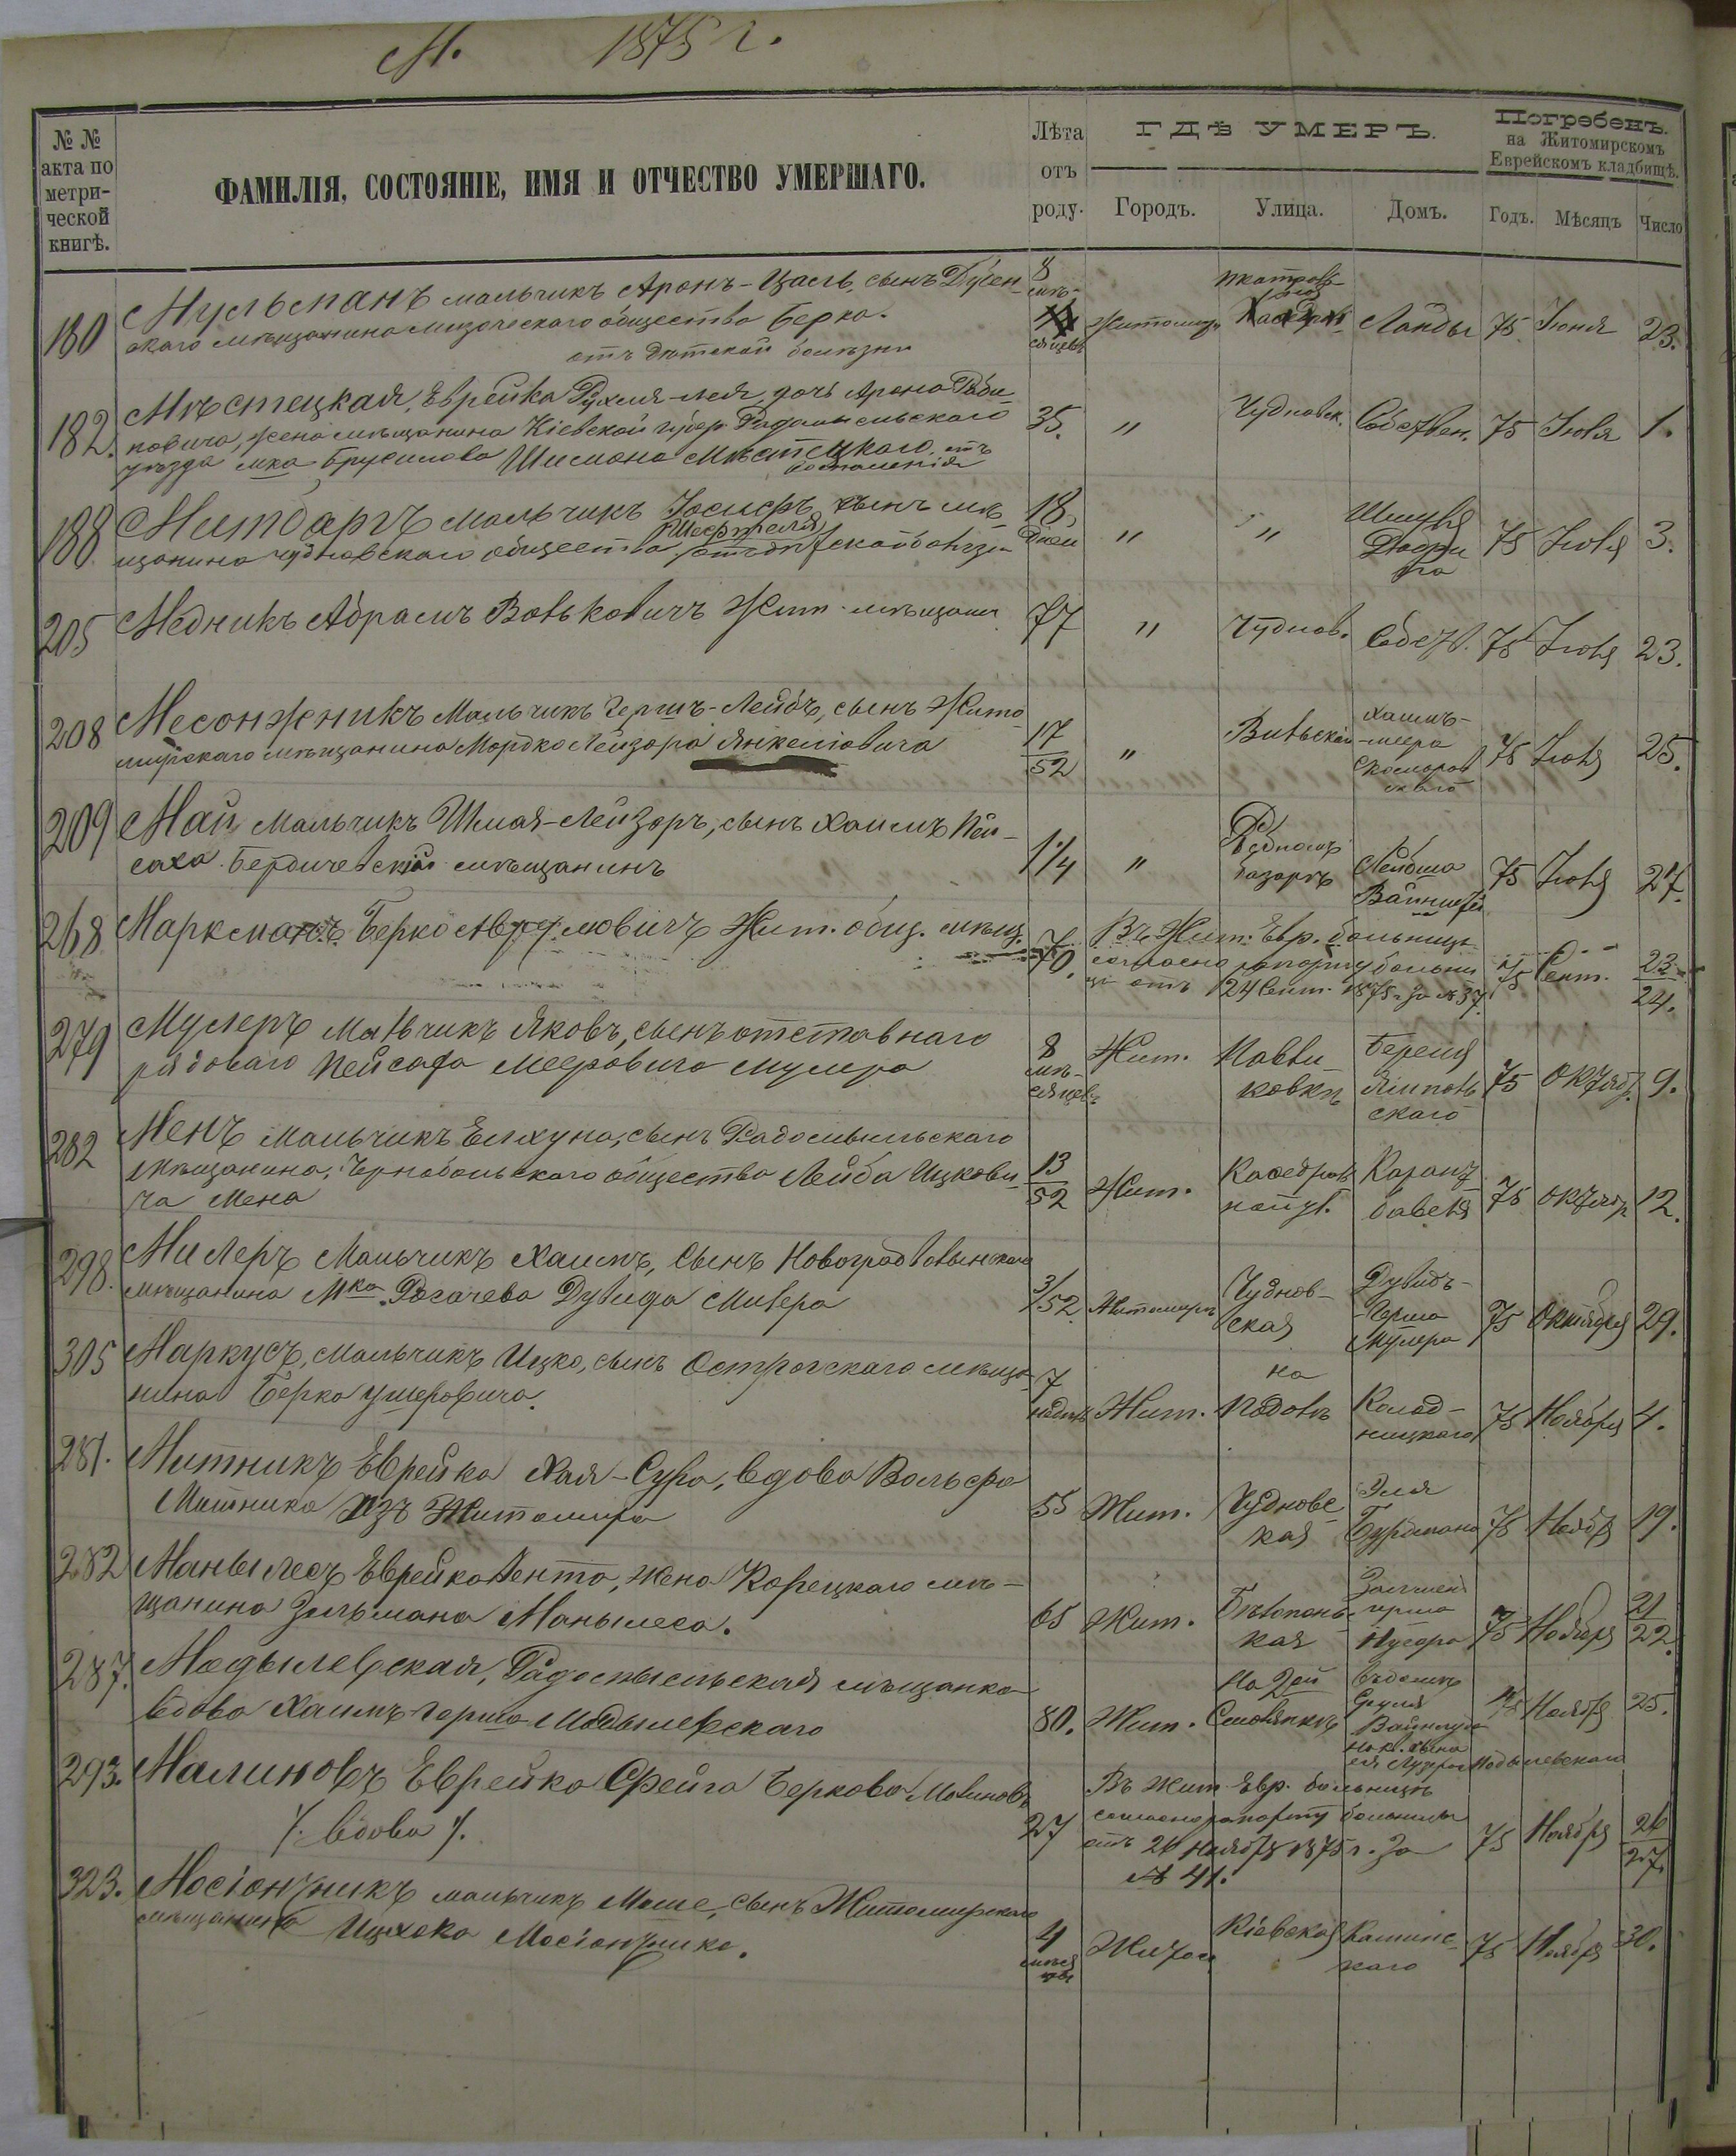 М. 1875 г.
№ № акта по метрической книгѣ.
ФАМИЛІЯ, СОСТОЯНІЕ, ИМЯ И ОТЧЕСТВО УМЕРШАГО.
Лѣта отъ роду.
ГДѢ УМЕРЪ.
Городъ. Улица. Домъ.
Погребенъ.
на Житомирскомъ
Еврейскомъ кладбищѣ.
Годъ. Мѣсяцъ Число
180 Мульманъ мальчикъ Аронъ-Цаль, сынъ Дубен-
скаго мѣщанина Мизоческаго общества Берка.
отъ дѣтской болѣзни
8 мѣсяцевъ Житомиръ Ланды 75 Іюня 23.
182. Мѣстецкая, Еврейка Рухля-Лея, дочь Арона Раби-
новича, жена мѣщанина Кіевской губер. Радомысльскаго
уѣзда мка Брусилова Шимона Мѣстецкаго, отъ
воспаленія
35. " Чудновск. Собствен. 75 Іюля 1.
188 Митбаргъ мальчикъ Іосифъ, сынъ мѣ-
щанина чудновскаго общества отъ дѣтской болѣзн
18 дней " " Шмуля 75 Іюля 3.
205 Медникъ Абрамъ Вольковичъ Жит. мѣщан
77 " Чуднов. Собст. 75 Іюля 23.
208 Месонжникъ Мальчикъ Гершъ-Лейбъ, сынъ Жито-
мирскаго мѣщанина Мордко Лейзора Янкеліовича
17/52 " Вильская Хаимъ-
меера
75 Іюля 25.
209 Май, Мальчикъ Шмая-Лейзоръ, сынъ Хаимъ Пей-
саха Бердичевскій мѣщанинъ
1 1/4 " базаръ Лейбиша
75 Іюля 27.
268 Маркманъ Берко Жит. общ. мѣщ.
70. Въ Жит. Евр. больницѣ
согласно рапорту больни
цы отъ 24 Сент. 1875 г за № 37.
75 Сент. 23/24.
279 Мулеръ Мальчикъ Яковъ, сынъ отставнаго
рядоваго Пейсаха Мееровича Мулера
8 мѣсяцевъ Жит. Павли-
ковкѣ
Береля
75 Октябр. 9.
282 Менъ Мальчикъ Елхуна, сынъ Радомысльскаго
Мѣщанина, Чернобольскаго общества Лейба Ицкови-
ча Мена
13/52 Жит. Каѳедраль
ная ул.
75 Октябр 12.
298. Милеръ Мальчикъ Хаимъ, сынъ Новоградволынскаго
мѣщанина Мка Рогачева Дувида Милера
3/52. Житомиръ Чуднов-
ская
Дувидъ-
Герша
Мулера
75 Октября 29.
305 Маркусъ, Мальчикъ Ицко, сынъ Острогскаго мѣща-
нина Берка Ушеровича.
7 Жит. на
Подолѣ
Колод-
ницкаго
75 Ноября 4.
281. Митникъ Еврейка Хая-Сура, вдова Вольфа
Митника изъ Житомира
55 Жит. Чудновс-
кая
Эля
Бурдмана
75 Ноябр 19.
282 Манылесъ Еврейка Ента, жена Корецкаго мѣ-
щанина Зальмана Манылеса.
65 Жит. Бѣлопольс-
кая
Герша
75 Ноября 21/22.
287. Модылевская, Радомысльская мѣщанка
вдова Хаимъ-Герша Модылевскаго
80. Жит. На 2ой
Смолянкѣ
Сруля
ея Лузера Модылевскаго
75 Ноября 25.
293. Малиновъ Еврейка Фейга Беркова Малиновъ
/. вдова /.
27 Въ Жит. Евр. больницѣ
согласно рапорту больницы
отъ 26 Ноября 1875 г. за
№ 41.
75 Ноября 26/27.
323. Мосіонжникъ мальчикъ Моше, сынъ Житомирскаго
мѣщанина Ицхока Мосіонжника.
4 мѣсяцевъ Житом Кіевская Каминс-
каго
75 Ноября 30.